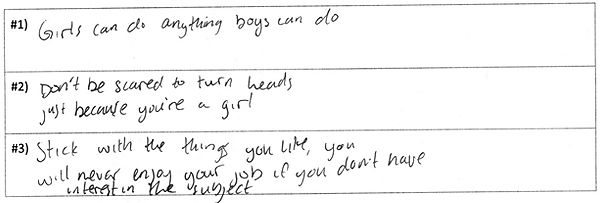 #1) Girls can do anything boys can do
#2) Don't be scared to turn heads
just because you're a girl
#3) Stick with the things you like, you
will never enjoy your job if you don't have
interest in the subject